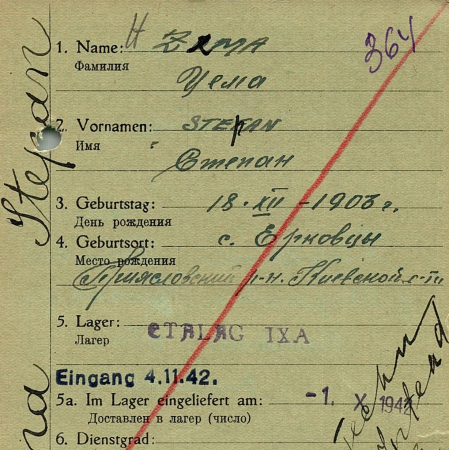 364
1. Name: ZEMA
Фамилия Цема
2. Vornamen: STEPAN
Имя Степан
3. Geburtstag: 18. XII - 1903 г.
День рождения
4. Geburtsort: с. Ерковцы
Место рождения
р-н. Киевской
5. Lager: STALAG IXA
Лагер
Eingang 4.11.42.
5a. Im Lager eingeliefert am: -1. X 1942
Доставлен в лагер (число)
6. Dienstgrad:
Stepan